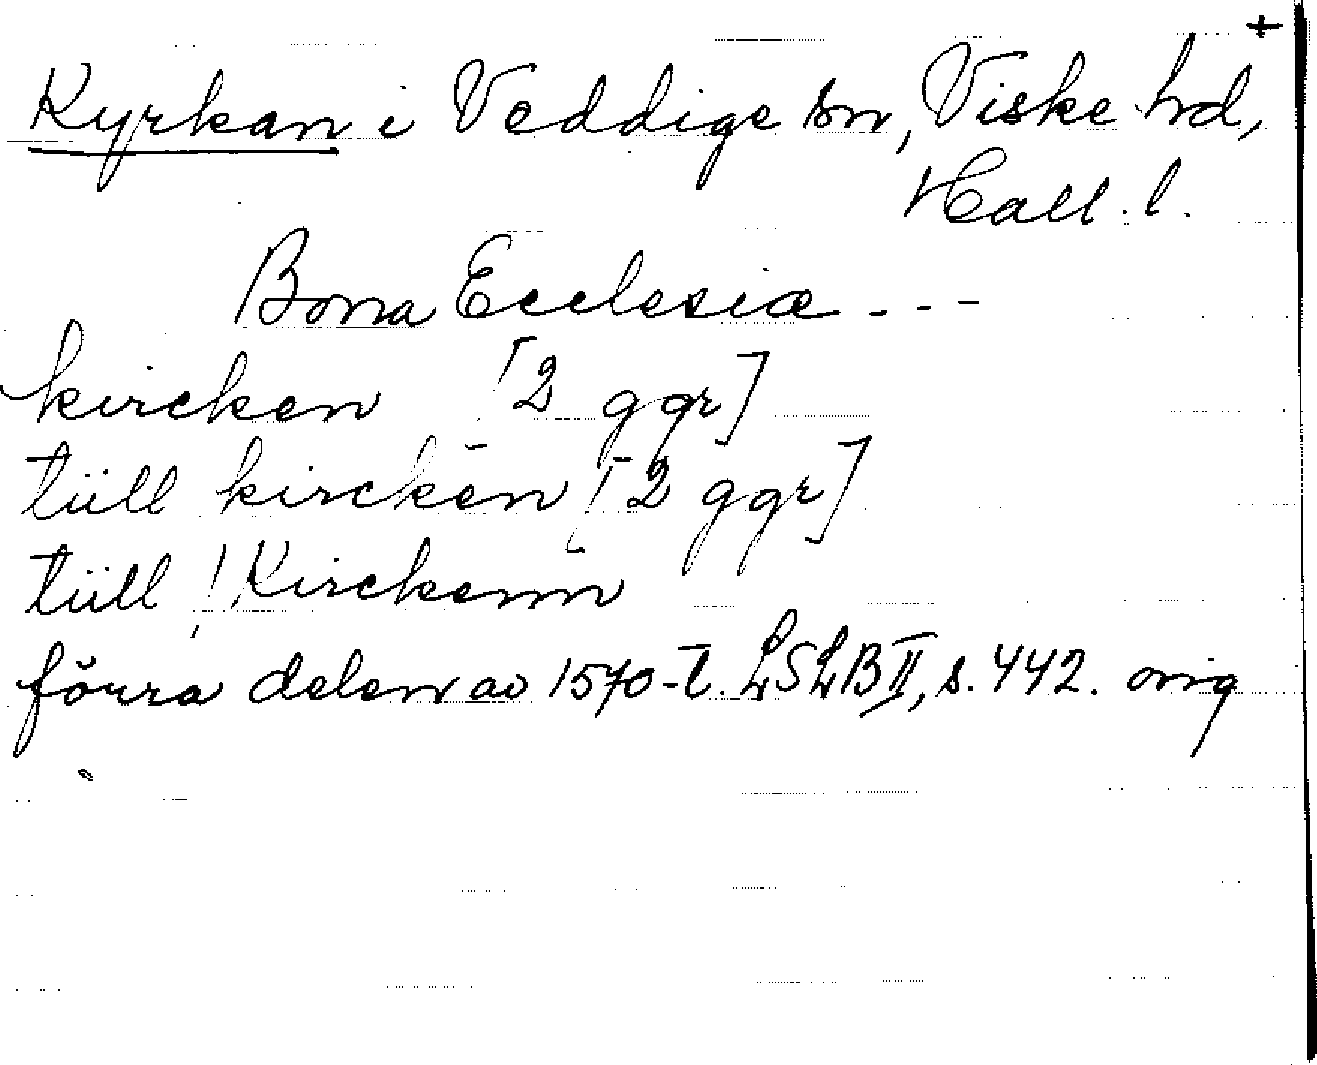 +
Kyrkan i Veddige sn, Viske hd,
Hall. l.
Bona Ecclesiæ - - -
kircken [2 ggr]
tüll kirckēn [2 ggr]
tüll ! Kirckenn
förra delen av 1570-t. LSLB II, s. 442. orig